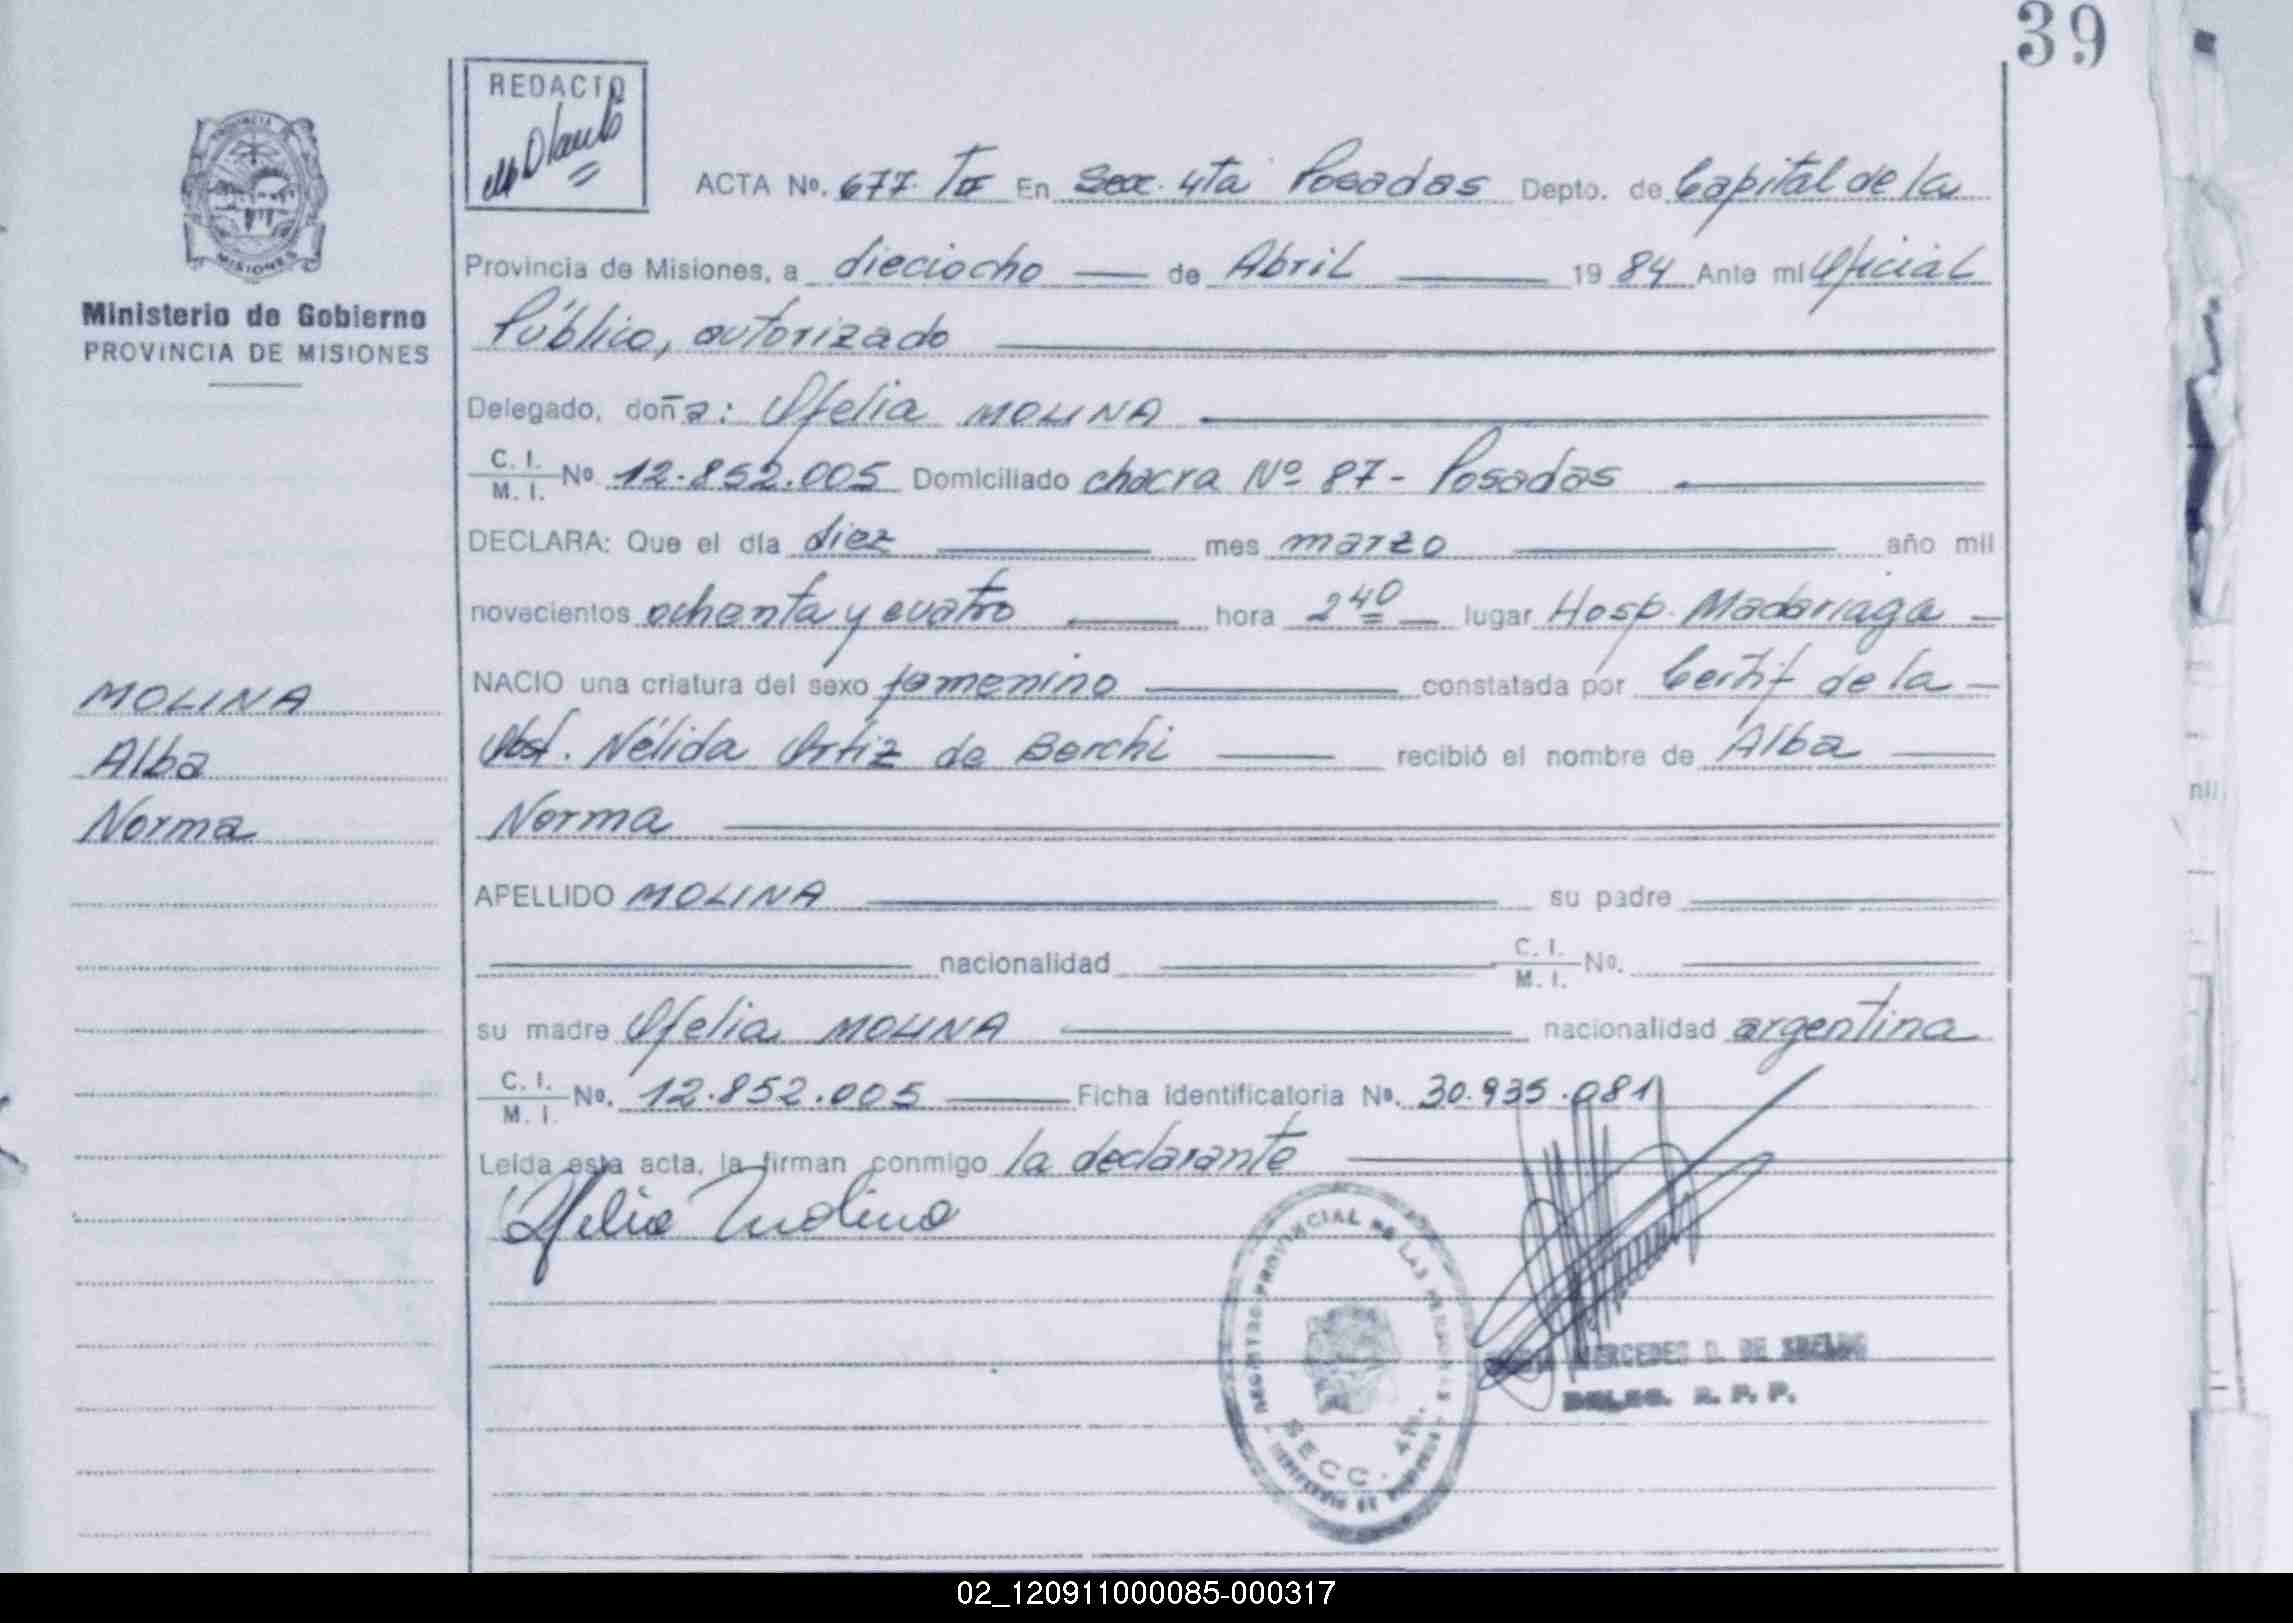 39
REDACTO
PROVINCIA DE
MISIONES
Ministerio de Gobierno
PROVINCIA DE MISIONES
ACTA No. 677. En Secc. 4ta Posadas Depto. de Capital de la
Provincia de Misiones, a dieciocho de Abril 1984 Ante mi Oficial
Público, autorizado
Delegado, doña: Ofelia MOLINA
C. I.
M. I. No 12.852.005 Domiciliado chacra Nº 87 - Posadas
DECLARA: Que el día diez mes marzo año mil
novecientos ochenta y cuatro hora 2 40 lugar Hosp. Madariaga
NACIO una criatura del sexo femenino constatada por Certif de la
Obst. Nélida Ortiz de Berchi recibió el nombre de Alba
Norma
APELLIDO MOLINA su padre
nacionalidad C. I.
M. I. No.
su madre Ofelia MOLINA nacionalidad argentina
C. I.
M. I. No. 12.852.005 Ficha identificatoria No. 30.935.081
Leída esta acta, la firman conmigo la declarante
Ofelia Molina
MOLINA
Alba
Norma
REGISTRO PROVINCIAL DE LAS PERSONAS
SECC. 4ta.
MERCEDES D. DE
DELEG. R. P. P.
02_120911000085-000317